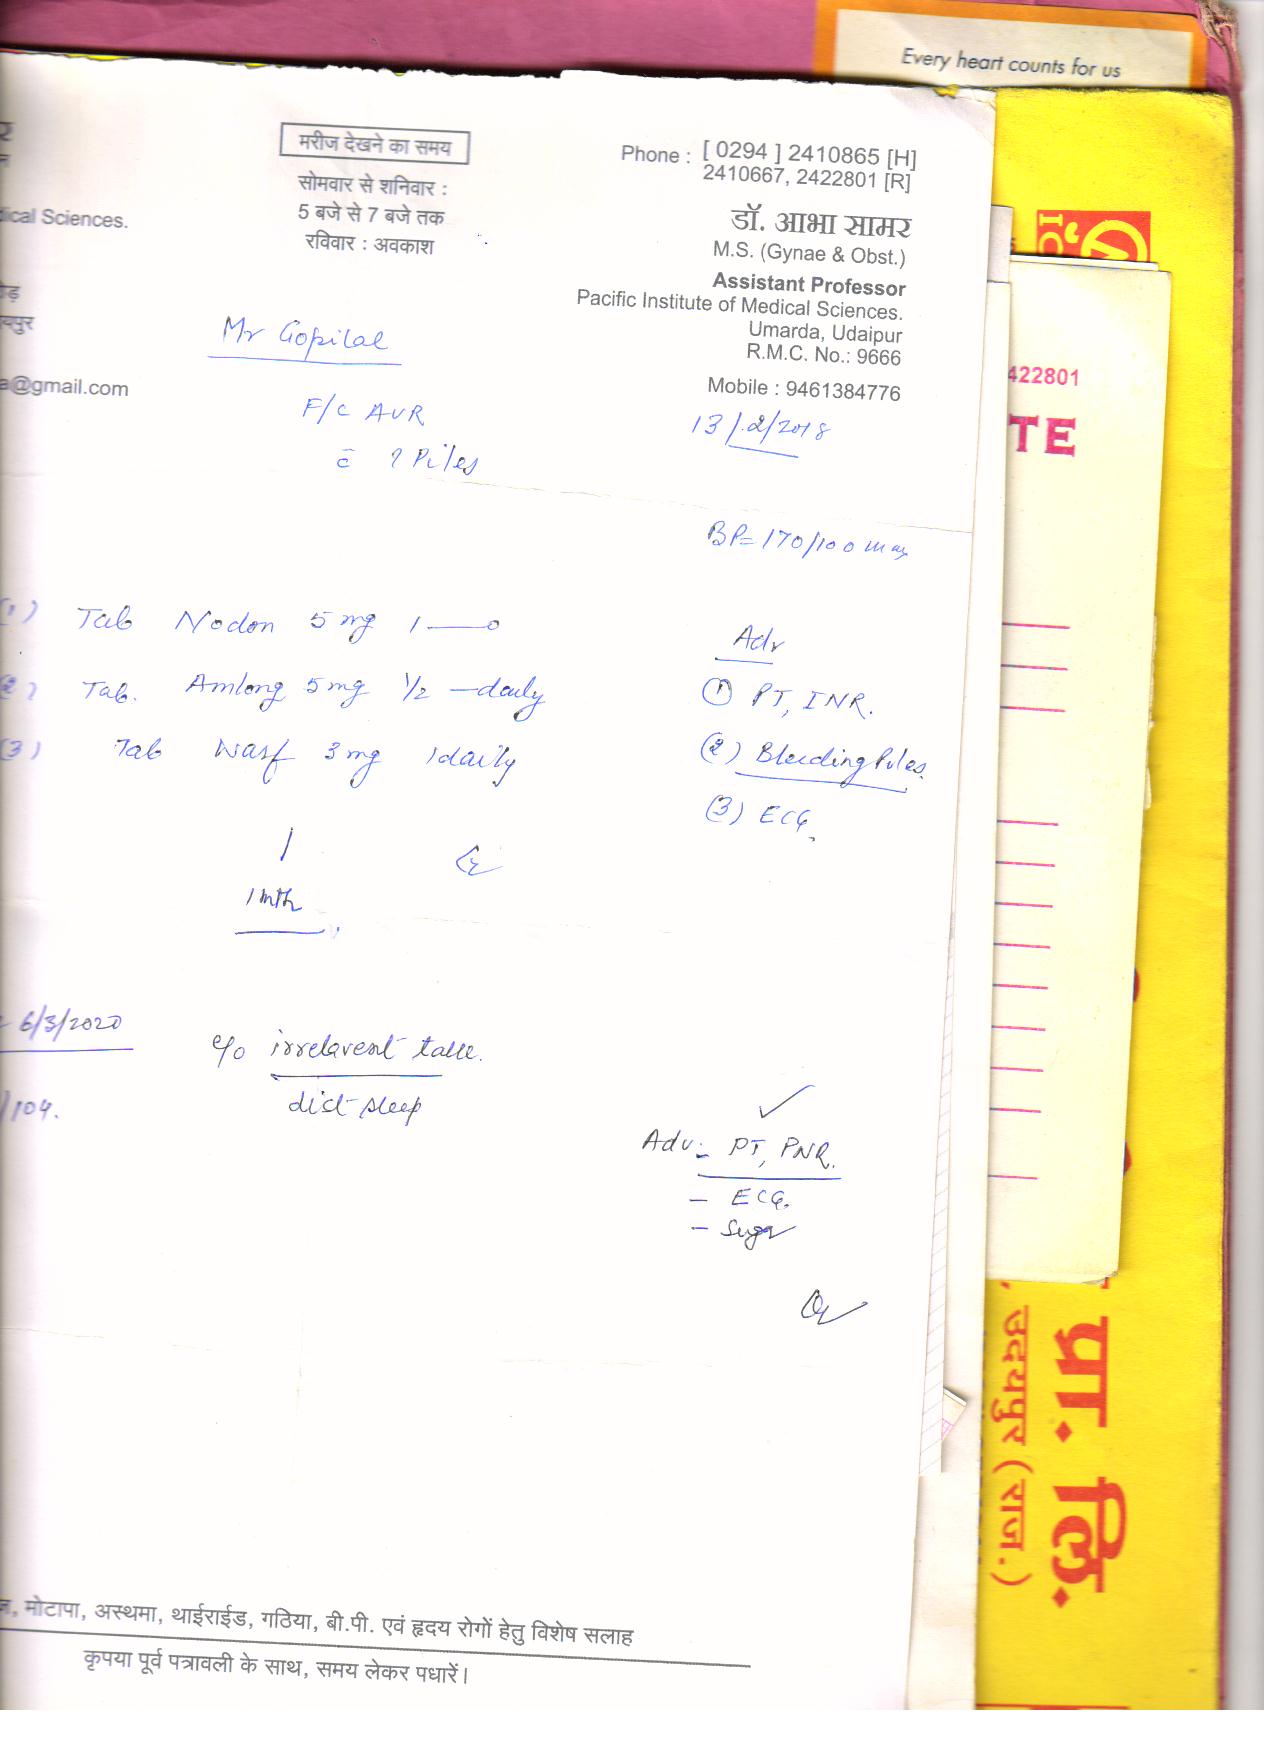 Every heart counts for us
मरीज देखने का समय
सोमवार से शनिवार :
5 बजे से 7 बजे तक
रविवार : अवकाश
Phone : [ 0294 ] 2410865 [H]
2410667, 2422801 [R]
डॉ. आभा सामर
M.S. (Gynae & Obst.)
Assistant Professor
Pacific Institute of Medical Sciences.
Umarda, Udaipur
R.M.C. No.: 9666
Mobile : 9461384776
ical Sciences.
यपुर
a@gmail.com
Mr Gopilal
F/c AVR
c̄ ? Piles
13/2/2018
BP= 170/100
(1) Tab Nodon 5 mg 1——o
(2) Tab. Amlong 5 mg 1/2 —daily
(3) Tab Warf 3 mg 1 daily
1 mth
Adv
(1) PT, INR.
(2) Bleeding Piles.
(3) ECG.
6/3/2020
/104.
c/o irrelavent talk.
dist sleep
Adv- PT, PNR.
- ECG.
- Sugar
, मोटापा, अस्थमा, थाईराईड, गठिया, बी.पी. एवं हृदय रोगों हेतु विशेष सलाह
कृपया पूर्व पत्रावली के साथ, समय लेकर पधारें।
422801
TE
प्रा. लि.
उदयपुर (राज.)